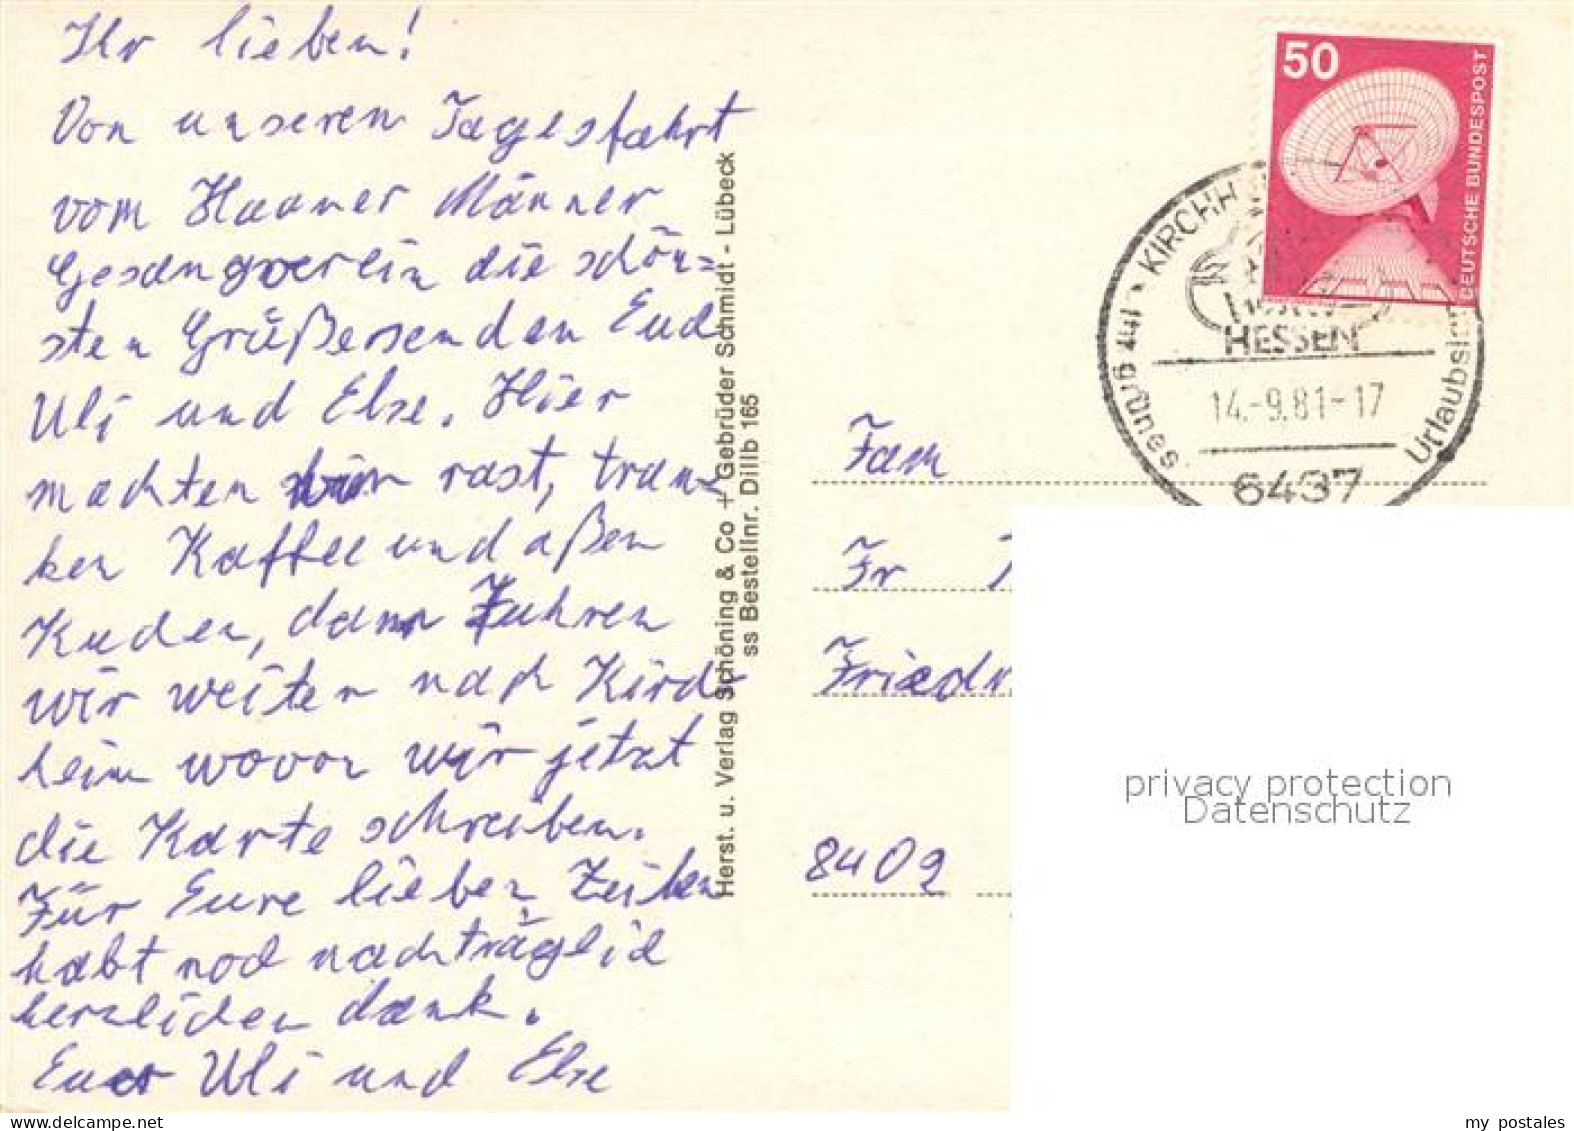 Ihr lieben!
Von unseren Tagesfahrt
vom Haaner Männer
Gesangverein die schön=
sten Grüße senden Eud
Uli und Else. Hier
machten wir rast, tran=
ken Kaffee und aßen
Kuden, dann Fuhren
wir weiten nach Kird-
heim wovon wir jetzt
die Karte schreiben.
Für Eure lieben Zeilen
habt nod nachträglid
herzliden dank.
Euer Uli und Else
Herst. u. Verlag Schöning & Co + Gebrüder Schmidt - Lübeck
ss Bestellnr. Dillb 165
50
DEUTSCHE BUNDESPOST
Ihr grünes
KIRCHH
HESSEN
14.-9.81-17
6437
Fam
Fr
8409
privacy protection
Datenschutz
my postales